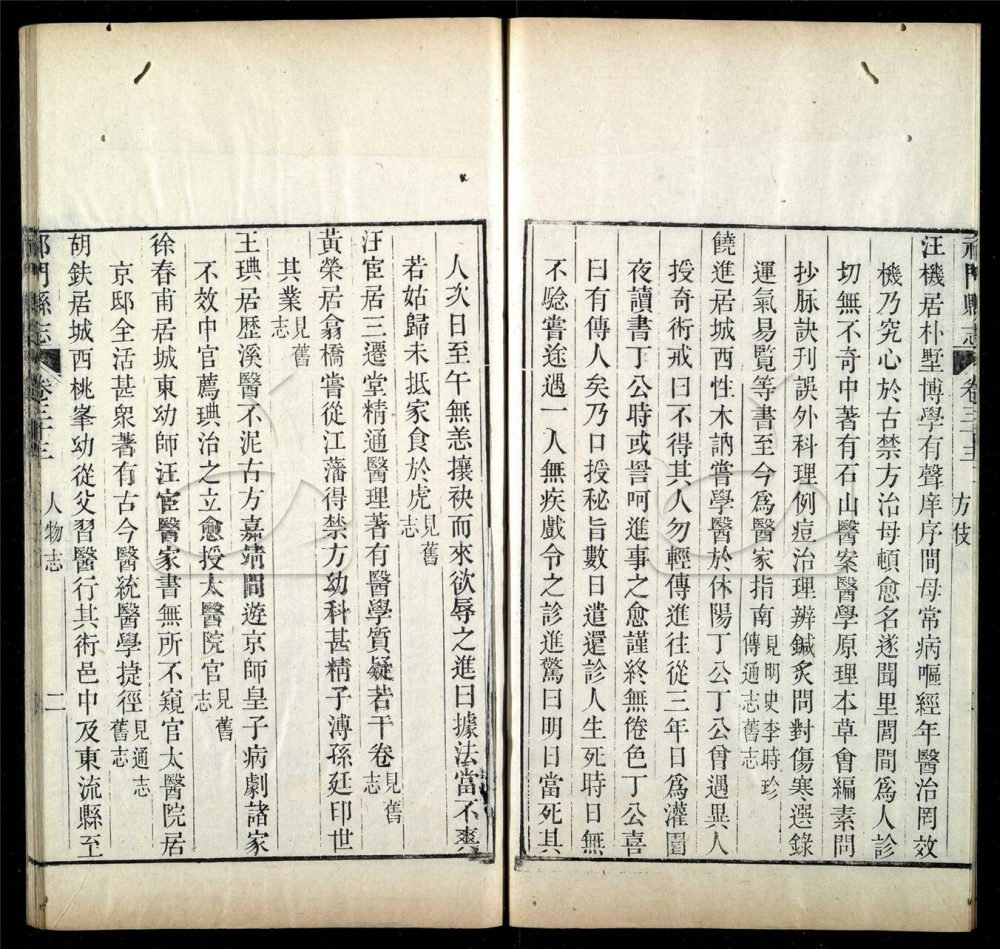 祁門縣志 卷三十三 方伎
汪機居朴墅博學有聲庠序間母常病嘔經年醫治罔效
機乃究心於古禁方治母頓愈名遂聞里閭間爲人診
切無不奇中著有石山醫案醫學原理本草會編素問
抄脉訣刊誤外科理例痘治理辨鍼炙問對傷寒選錄
運氣易覽等書至今爲醫家指南見明史李時珍傳通志舊志
饒進居城西性木訥嘗學醫於休陽丁公丁公曾遇異人
授奇術戒曰不得其人勿輕傳進往從三年日爲灌園
夜讀書丁公時或詈呵進事之愈謹終無倦色丁公喜
曰有傳人矣乃口授秘旨數日遣還診人生死時日無
不騐嘗途遇一人無疾戲令之診進驚曰明日當死其
人次日至午無恙攘袂而來欲辱之進曰據法當不爽
若姑歸未抵家食於虎見舊志
汪宦居三遷堂精通醫理著有醫學質疑若干卷見舊志
黃榮居翕橋嘗從江藩得禁方幼科甚精子溥孫廷印世
其業見舊志
王琠居歷溪醫不泥古方嘉靖間遊京師皇子病劇諸家
不效中官薦琠治之立愈授太醫院官見舊志
徐春甫居城東幼師汪宦醫家書無所不窺官太醫院居
京邸全活甚衆著有古今醫統醫學捷徑見通志舊志
胡鈇居城西桃峯幼從父習醫行其術邑中及東流縣至
祁門縣志 卷三十三 人物志 二